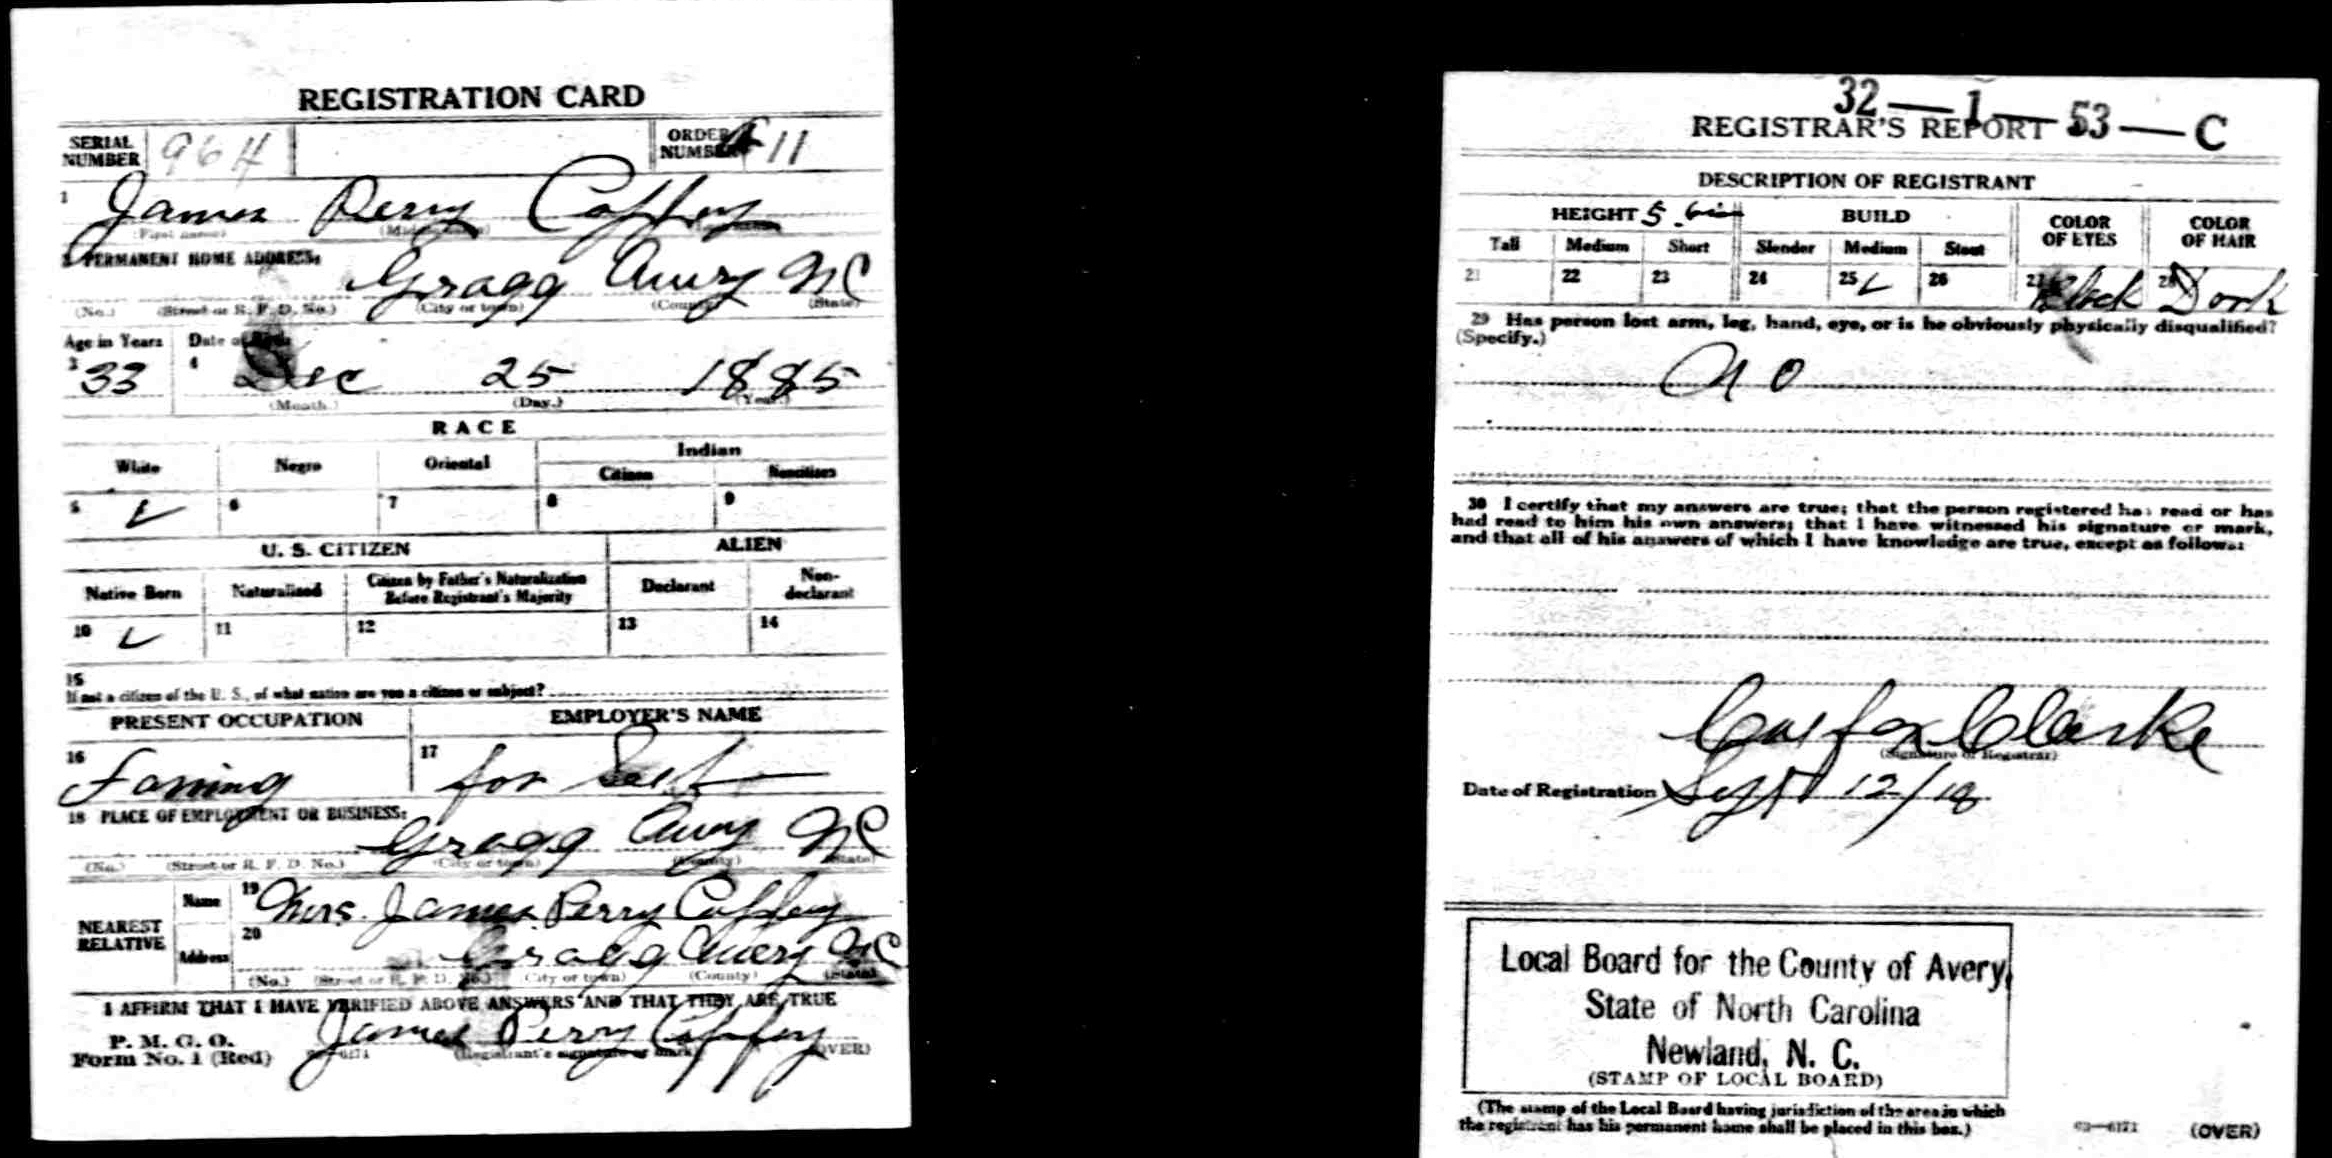 REGISTRATION CARD
SERIAL NUMBER 964 ORDER NUMBER 411
1 James Perry Coffey
(First name) (Middle name) (Last name)
2 PERMANENT HOME ADDRESS:
Gragg Avery NC
(No.) (Street or R. F. D. No.) (City or town) (County) (State)
Age in Years Date of Birth
3 33 4 Dec 25 1885
(Month.) (Day.) (Year.)
RACE
White Negro Oriental Indian
Citizen Noncitizen
5 6 7 8 9
U. S. CITIZEN ALIEN
Native Born Naturalized Citizen by Father's Naturalization Before Registrant's Majority Declarant Non-declarant
10 11 12 13 14
15
If not a citizen of the U. S., of what nation are you a citizen or subject?
PRESENT OCCUPATION EMPLOYER'S NAME
16 Farming 17 for Self
18 PLACE OF EMPLOYMENT OR BUSINESS:
Gragg Avery NC
(No.) (Street or R. F. D. No.) (City or town) (County) (State)
NEAREST RELATIVE
Name 19 Mrs. James Perry Coffey
Address 20 Gragg Avery NC
(No.) (Street or R. F. D. No.) (City or town) (County) (State)
I AFFIRM THAT I HAVE VERIFIED ABOVE ANSWERS AND THAT THEY ARE TRUE
P. M. G. O.
Form No. 1 (Red) James Perry Coffey
(Registrant's signature or mark) (OVER)
32—1—53—C
REGISTRAR'S REPORT
DESCRIPTION OF REGISTRANT
HEIGHT BUILD COLOR OF EYES COLOR OF HAIR
Tall Medium Short Slender Medium Stout
21 22 23 24 25 26 27 Black 28 Dark
29 Has person lost arm, leg, hand, eye, or is he obviously physically disqualified?
(Specify.)
No
30 I certify that my answers are true; that the person registered has read or has
had read to him his own answers; that I have witnessed his signature or mark,
and that all of his answers of which I have knowledge are true, except as follows:
Clarke
(Signature of Registrar)
Date of Registration Sept 12/18
Local Board for the County of Avery,
State of North Carolina
Newland, N. C.
(STAMP OF LOCAL BOARD)
(The stamp of the Local Board having jurisdiction of the area in which
the registrant has his permanent home shall be placed in this box.)
(OVER)